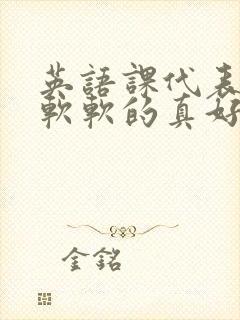 英語課代表
軟軟的真好
金銘